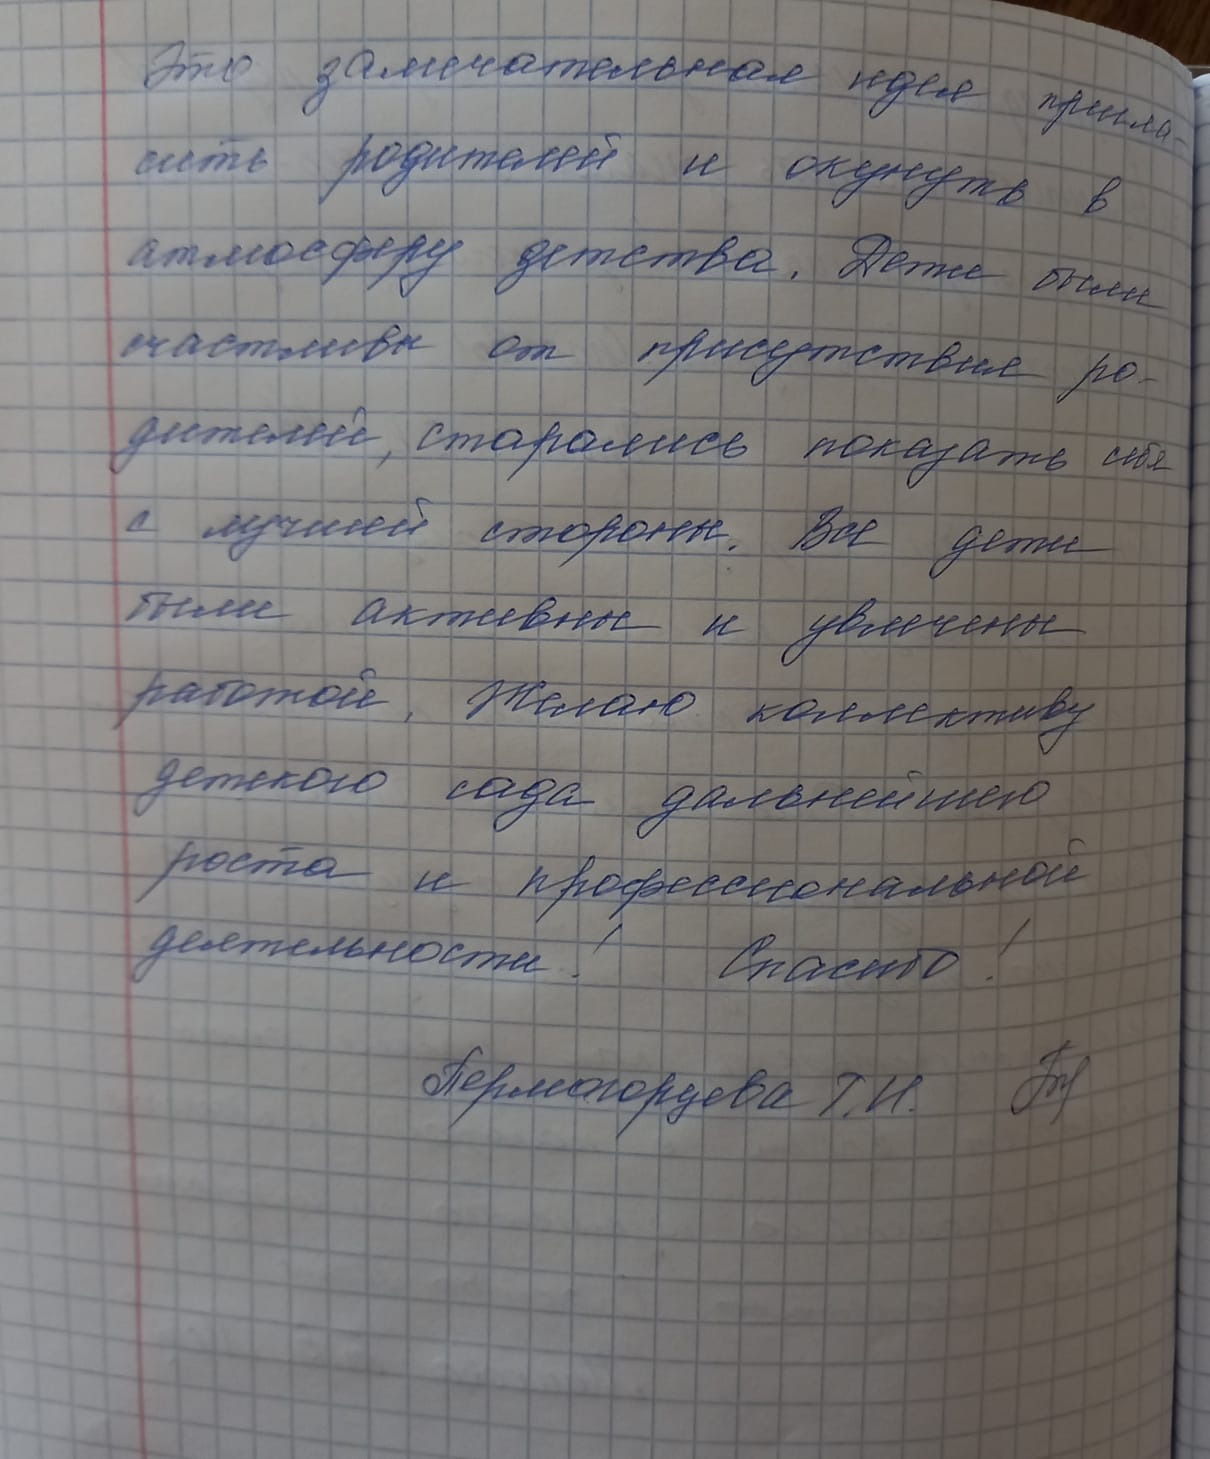 Это замечательная идея пригла-
сить родителей и окунуть в
атмосферу детства. Дети были
счастливы от присутствия ро-
дителей, старались показать себя
с лучшей стороны. Все дети
были активны и увлечены
работой. Желаю коллективу
детского сада дальнейшего
роста и профессиональной
деятельности! Спасибо!
Пермогорцева Т.И.